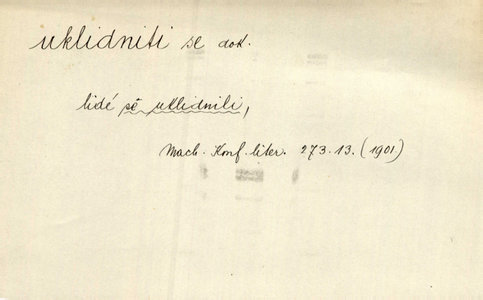 uklidniti se dok.
lidé se uklidnili,
Mach. Konf. liter. 273.13. (1901)